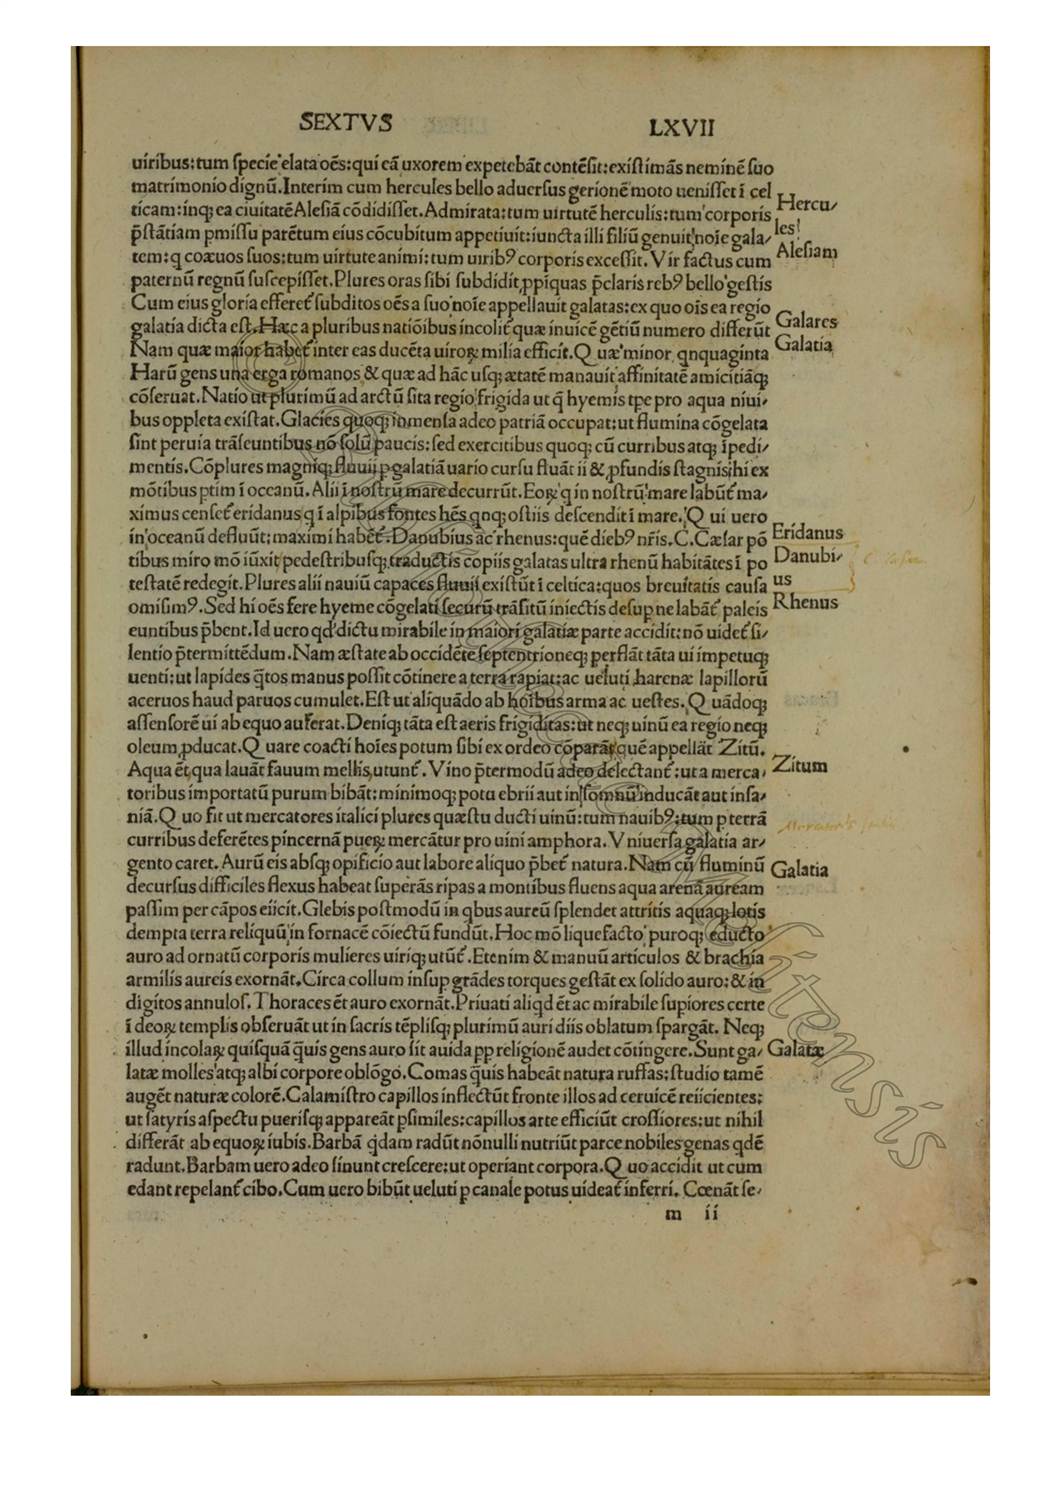 SEXTVS LXVII
uiribus:tum specie elata oēs:qui eā uxorem expetebāt contēsit:existimās neminē suo
matrimonio dignū.Interim cum hercules bello aduersus gerionē moto uenisset ī cel
ticam:inq; ea ciuitatē Alesiā cōdidisset.Admirata:tum uirtutē herculis:tum corporis
p̄stātiam ꝑmissu parētum eius cōcubitum appetiuit:iuncta illi filiū genuit noīe gala/
tem:q coæuos suos:tum uirtute animi:tum uiribꝰ corporis excessit.Vir factus cum
paternū regnū suscepisset.Plures oras sibi subdidit ꝓpīquas p̄claris rebꝰ bello gestis
Cum eius gloria efferet̄ subditos oēs a suo noīe appellauit galatas:ex quo oīs ea regio
galatia dicta est.Hæc a pluribus natiōibus incolit̄ quæ inuicē gētiū numero differūt
Nam quæ maior habet̄ inter eas ducēta uiroꝝ milia efficit.Quæ minor qnquaginta
Harū gens una erga romanos & quæ ad hāc usq; ætatē manauit affinitatē amicitiāq;
cōseruat.Natio ut plurimū ad arctū sita regio frigida ut q̄ hyemis tp̄e pro aqua niui/
bus oppleta existat.Glacies quoq; inmensa adeo patriā occupat:ut flumina cōgelata
sint peruia trāseuntibus nō solū paucis:sed exercitibus quoq; cū curribus atq; īpedi/
mentis.Cōplures magniq; fluuii ꝑ galatiā uario cursu fluāt ii & ꝓfundis stagnis:hi ex
mōtibus ꝑtim ī oceanū.Alii ī nostrū mare decurrūt.Eoꝝ q in nostrū mare labūt̄ ma/
ximus censet̄ eridanus q ī alpibus fontes hēs qnq; ostiis descendit ī mare.Qui uero
in oceanū defluūt:maximi habēt̄.Danubius ac rhenus:quē diebꝰ nr̄is.C.Cæsar pō
tibus miro mō iūxit pedestribusq; traductis copiis galatas ultra rhenū habitātes ī po
testatē redegit.Plures alii nauiū capaces fluuii existūt ī celtica:quos breuitatis causa
omisimꝰ.Sed hi oēs fere hyeme cōgelati securū trāsitū iniectis desuꝑ ne labāt̄ paleis
euntibus p̄bent.Id uero qd dictu mirabile in maiori galatiæ parte accidit:nō uidet̄ si/
lentio p̄termittēdum.Nam æstate ab occidēte septentrioneq; perflāt tāta ui impetuq;
uenti:ut lapides q̄tos manus possit cōtinere a terra rapiat:ac ueluti harenæ lapillorū
aceruos haud paruos cumulet.Est ut aliquādo ab hoībus arma ac uestes.Quādoq;
assensorē ui ab equo auferat.Deniq; tāta est aeris frigiditas:ut neq; uinū ea regio neq;
oleum ꝓducat.Quare coacti hoīes potum sibi ex ordeo cōparāt quē appellāt Zitū.
Aqua ēt qua lauāt fauum mellis utunt̄.Vino p̄termodū adeo delectant̄:ut a merca/
toribus importatū purum bibāt:minimoq; potu ebrii aut in somnū inducāt aut insa/
niā.Quo fit ut mercatores italici plures quæstu ducti uinū:tum nauibꝰ:tum ꝑ terrā
curribus deferētes pīncernā pueꝝ mercātur pro uini amphora.Vniuersa galatia ar/
gento caret.Aurū eis absq; opificio aut labore aliquo p̄bet̄ natura.Nam cū fluminū
decursus difficiles flexus habeat superās ripas a montibus fluens aqua arenā auream
passim per cāpos eiicit.Glebis postmodū in qbus aureū splendet attritis aquaq; lotis
dempta terra reliquū in fornacē cōiectū fundūt.Hoc mō liquefacto puroq; educto
auro ad ornatū corporis mulieres uiriq; utūt̄.Etenim & manuū articulos & brachia
armilis aureis exornāt.Circa collum insuꝑ grādes torques gestāt ex solido auro:& in
digitos annulos.Thoraces ēt auro exornāt.Priuati aliqd ēt ac mirabile suꝑiores certe
ī deoꝝ templis obseruāt ut in sacris tēplisq; plurimū auri diis oblatum spargāt. Neq;
illud incolaꝝ quisquā q̄uis gens auro sit auida ꝓp religionē audet cōtingere.Sunt ga/
latæ molles atq; albi corpore oblōgo.Comas q̄uis habeāt natura ruffas:studio tamē
augēt naturæ colorē.Calamistro capillos inflectūt fronte illos ad ceruicē reiicientes:
ut satyris aspectu puerisq; appareāt ꝑsimiles:capillos arte efficiūt crossiores:ut nihil
differāt ab equoꝝ iubis.Barbā qdam radūt nōnulli nutriūt parce nobiles genas qdē
radunt.Barbam uero adeo sinunt crescere:ut operiant corpora.Quo accidit ut cum
edant repelant̄ cibo.Cum uero bibūt ueluti ꝑ canale potus uideat̄ inferri. Cœnāt se/
m ii
Hercu/
les
Alesiam
Galates
Galatia
Eridanus
Danubi/
us
Rhenus
Zitum
Galatia
Galatæ